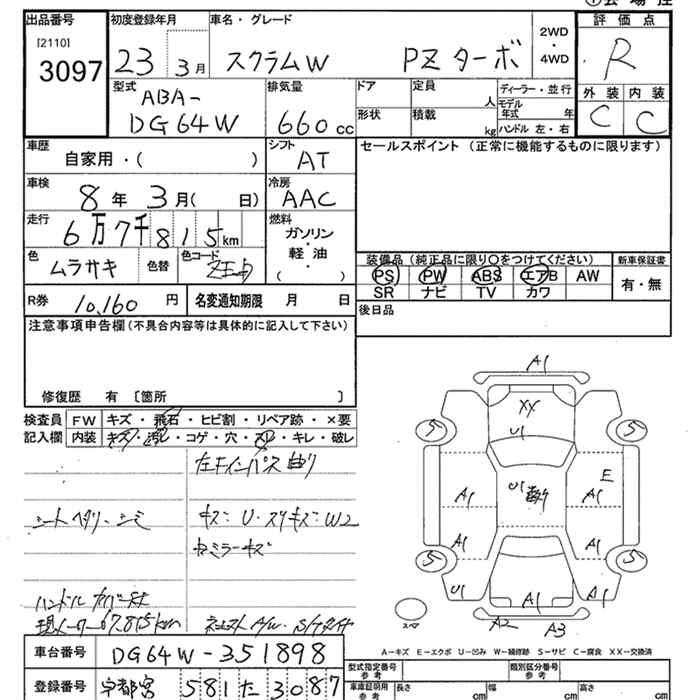 出品番号 初度登録年月 車名・グレード 2WD・4WD 評価点
[2110]
3097 23 3月 スクラムW PZターボ R
型式 ABA- 排気量 ドア 定員 人 ディーラー・並行 外装 内装
DG64W 660cc 形状 積載 kg モデル年式 年 ハンドル 左・右 C C
車歴 自家用・( ) シフト AT セールスポイント (正常に機能するものに限ります)
車検 8年 3月( 日) 冷房 AAC
走行 6万7千815km 燃料 ガソリン・軽油( )
色 ムラサキ 色替 色コード
装備品 (純正品に限り○をつけてください) 新車保証書
PS PW ABS エアB AW 有・無
SR ナビ TV カワ
R券 10,160円 名変通知期限 月 日 後日品
注意事項申告欄(不具合内容等は具体的に記入して下さい)
修復歴 有 〔箇所 〕
検査員記入欄 FW キズ・飛石・ヒビ割・リペア跡・×要
内装 キズ・汚レ・コゲ・穴・スレ・キレ・破レ
左Fインパネ曲り
シートヘタリ・シミ キズ:U・スリキズ:W2
ミラーキズ
ハンドル
現メーター67,815km
車台番号 DG64W-351898
登録番号 宇都宮 581 た 3087
A1
XX
U1
5 5
U1
E
A1 A1
A1 A1
5 5
U1 A1 A1
スペア A2 A3
A-キズ E-エクボ U-凹み W-補修跡 S-サビ C-腐食 XX-交換済
型式指定番号 参考 類別区分番号 参考
車庫証明用 参考 長さ cm 幅 cm 高さ cm